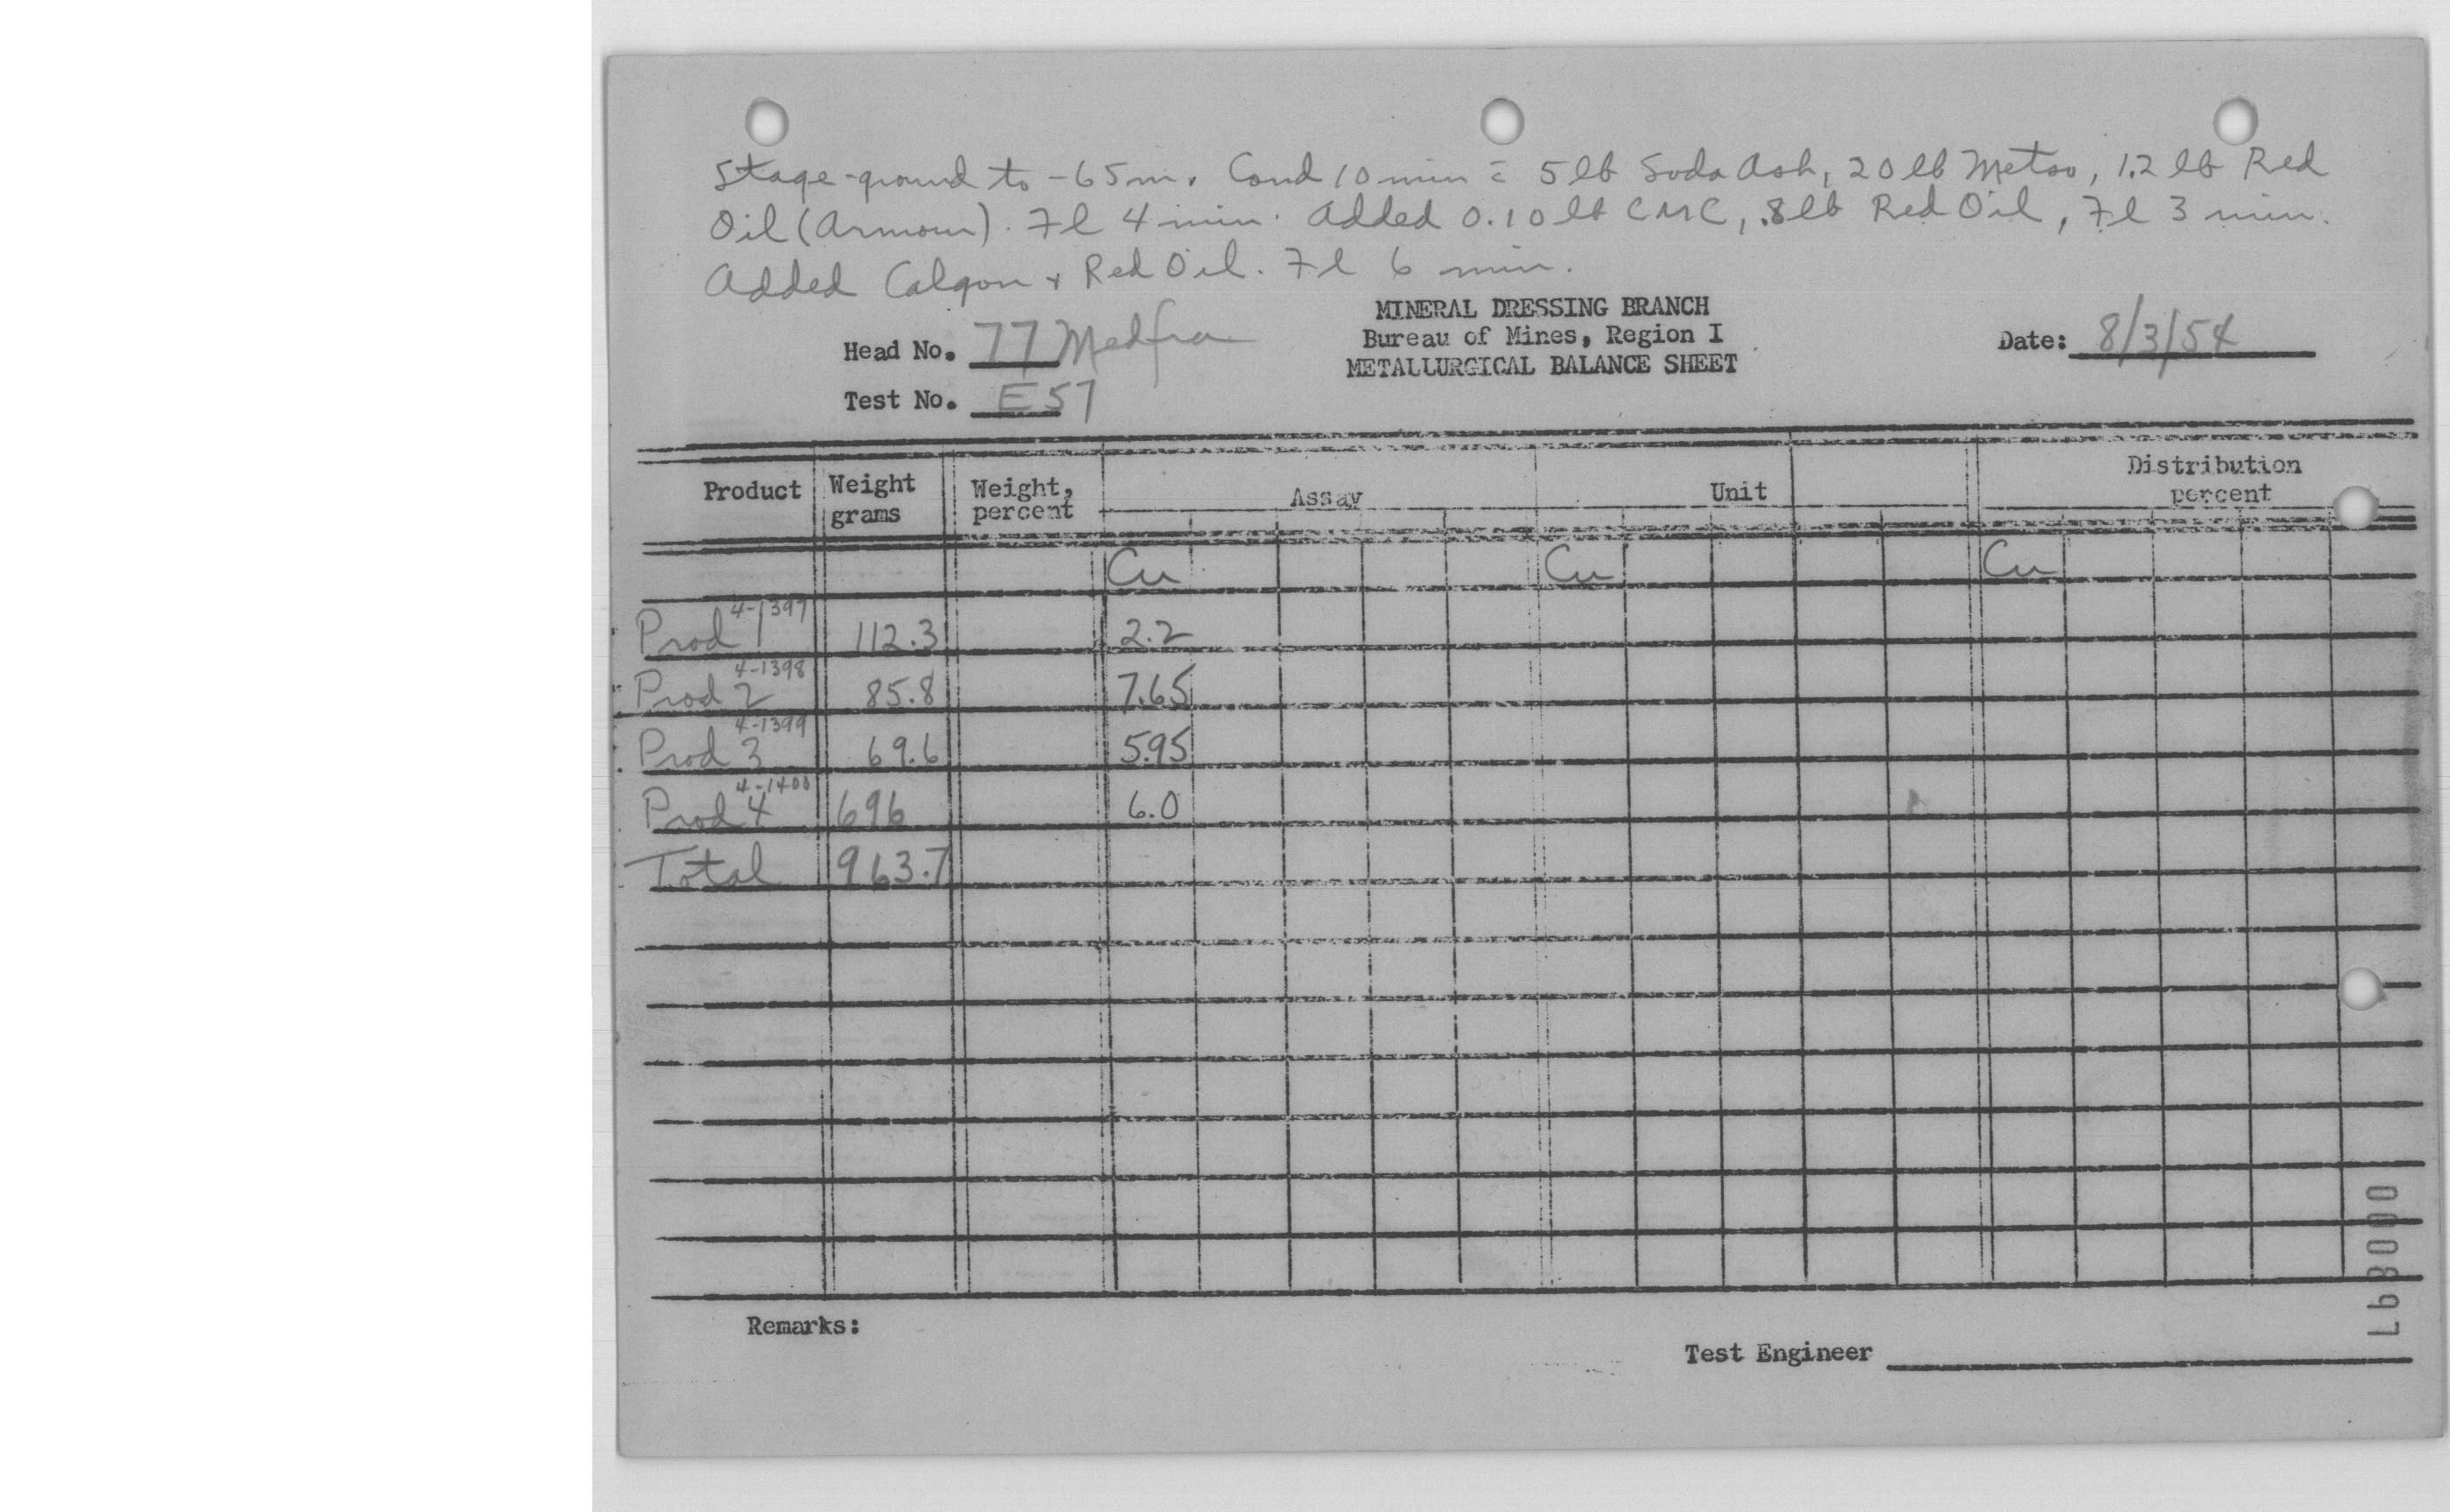 Stage-ground to -65m. Cond 10 min c̄ 5 lb Soda Ash, 20 lb Metso, 1.2 lb Red
Oil (Armour). Fl 4 min. Added 0.10 lb CMC, .8 lb Red Oil, Fl 3 min.
Added Calgon + Red Oil. Fl 6 min.
MINERAL DRESSING BRANCH
Bureau of Mines, Region I
METALLURGICAL BALANCE SHEET
Head No. 77 Medfra
Date: 8/3/54
Test No. E57
Product Weight grams Weight, percent Assay Unit Distribution percent
Cu Cu Cu
4-1397
Prod 1 112.3 2.2
4-1398
Prod 2 85.8 7.65
4-1399
Prod 3 69.6 5.95
4-1400
Prod 4 696 6.0
Total 963.7
Remarks:
Test Engineer